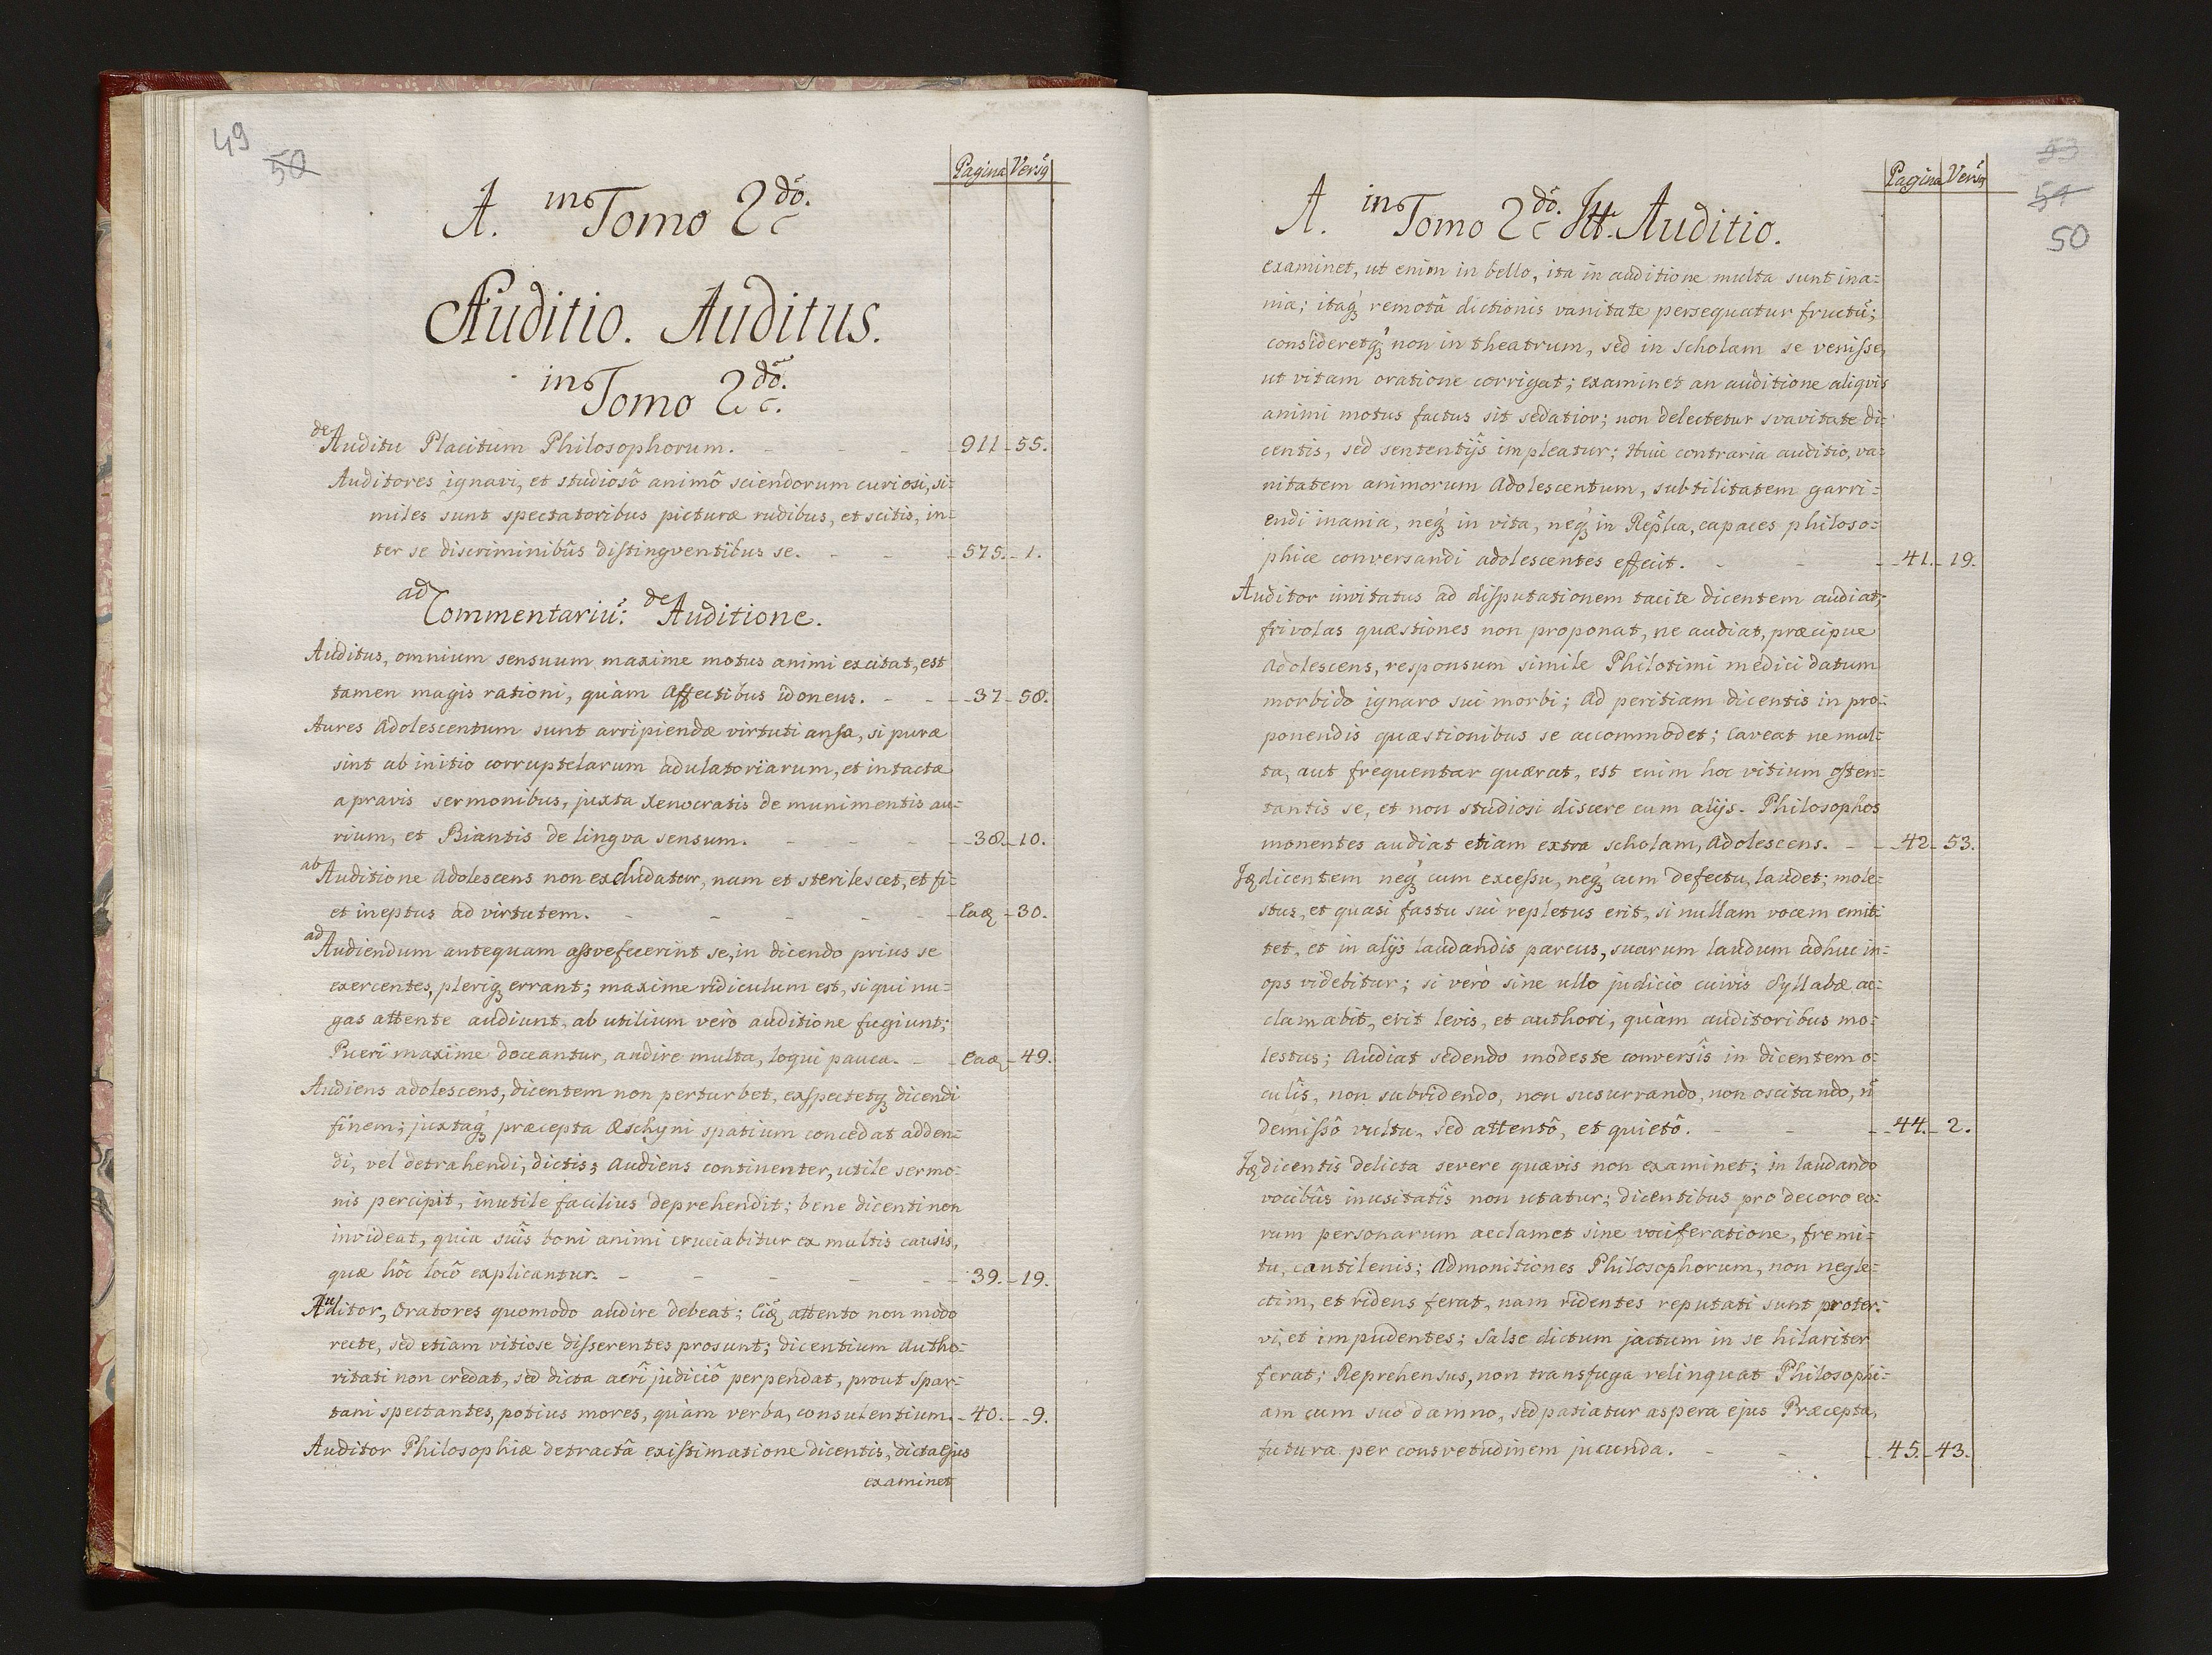 49
50
Pagina Versq
A. in Tomo 2do.
Auditio. Auditus.
in Tomo 2do.
de Auditu Placitum Philosophorum. - - - 911 - 55.
Auditores ignavi, et studiosô animô sciendorum curiosi, si=
miles sunt spectatoribus picturæ rudibus, et scitis, in=
ter se discriminibûs distingventibus se. - - - 575. - 1.
ad Commentariũ: de Auditione.
Auditus, omnium sensuum maxime motus animi excitat, est
tamen magis rationi, quàm affectibus idoneus. - - - 37 - 58.
Aures adolescentum sunt arripiendæ virtuti ansæ, si puræ
sint ab initio corruptelarum adulatoriarum, et intactæ
a pravis sermonibus, juxta Xenocratis de munimentis au=
rium, et Biantis de lingva sensum. - - - - 38. - 10.
ab Auditione adolescens non excludatur, nam et sterilescet, et fi=
et ineptus ad virtutem. - - - - - Eaq - 30.
ad Audiendum antequam assvefecerint se, in dicendo prius se
exercentes, pleriq errant; maxime ridiculum est, si qui nu=
gas attente audiunt, ab utilium verò auditione fugiunt;
Pueri maxime doceantur, audire multa, loqui pauca. - - Eaq - 49.
Audiens adolescens, dicentem non perturbet, exspectetq dicendi
finem; juxtaq præcepta Æschyni spatium concedat adden=
di, vel detrahendi, dictis; Audiens continenter, utile sermo=
nis percipit, inutile facilius deprehendit; bene dicenti non
invideat, quia suîs boni animi cruciabitur ex multis causis,
quæ hôc locô explicantur. - - - - - 39. - 19.
Auditor, Oratores quomodo audire debeat; Eiq attento non modo
recte, sed etiam vitiose disserentes prosunt; dicentium Autho=
ritati non credat, sed dicta acrî judiciô perpendat, prout Spar=
tani spectantes, potius mores, quàm verba, consulentium. - 40. - 9.
Auditor Philosophiæ detractâ existimatione dicentis, dicta ejus
examinet
53
51
50
Pagina Versq
A. in Tomo 2do. Itt. Auditio.
examinet, ut enim in bello, ita in auditione multa sunt ina=
nia; itaq remotâ dictionis vanitate persequatur fructũ;
consideretq non in theatrum, sed in scholam se venisse,
ut vitam oratione corrigat; examinet an auditione aliqvis
animi motus factus sit sedatior; non delectetur svavitate di=
centis, sed sententijs impleatur; Huic contraria auditio, va=
nitatem animorum adolescentum, subtilitatem garri=
endi inania, neq in vita, neq in Repŭlca, capaces philoso=
phice conversandi adolescentes effecit. - - - 41. - 19.
Auditor invitatus ad disputationem tacite dicentem audiat;
frivolas quæstiones non proponat, ne audiat, præcipue
adolescens, responsum simile Philotimi medici datum
morbido ignaro sui morbi; ad peritiam dicentis in pro=
ponendis quæstionibus se accommodet; caveat ne mul=
ta, aut frequenter quærat, est enim hoc vitium osten=
tantis se, et non studiosi discere cum alijs. Philosophos
monentes audiat etiam extra scholam, adolescens. - - 42 - 53.
Iq dicentem neq cum excessu, neq cum defectu, laudet; mole=
stus, et quasi fastu sui repletus erit, si nullam vocem emit=
tet, et in alijs laudandis parcus, suarum laudum adhuc in=
ops videbitur; si verò sine ullo judicio cuivis syllabæ ac=
clamabit, erit levis, et authori, quàm auditoribus mo=
lestus; Audiat sedendo modeste conversîs in dicentem o=
culîs, non subridendo, non susurrando, non oscitando, ñ
demissô vultu, sed attentô, et quietô. - - - 44. - 2.
Iq dicentis delicta severe quævis non examinet; in laudando
vocibûs inusitatîs non utatur; dicentibus pro decoro eo=
rum personarum acclamet sine vociferatione, fremi=
tu, cantilenis; Admonitiones Philosophorum, non negle=
ctim, et ridens ferat, nam ridentes reputati sunt proter=
vi, et impudentes; Salse dictum jactum in se hilariter
ferat; Reprehensus, non transfuga relinquat Philosophi=
am cum suo damno, sed patiatur aspera ejus Præcepta,
futura per consvetudinem jucunda. - - - 45. - 43.